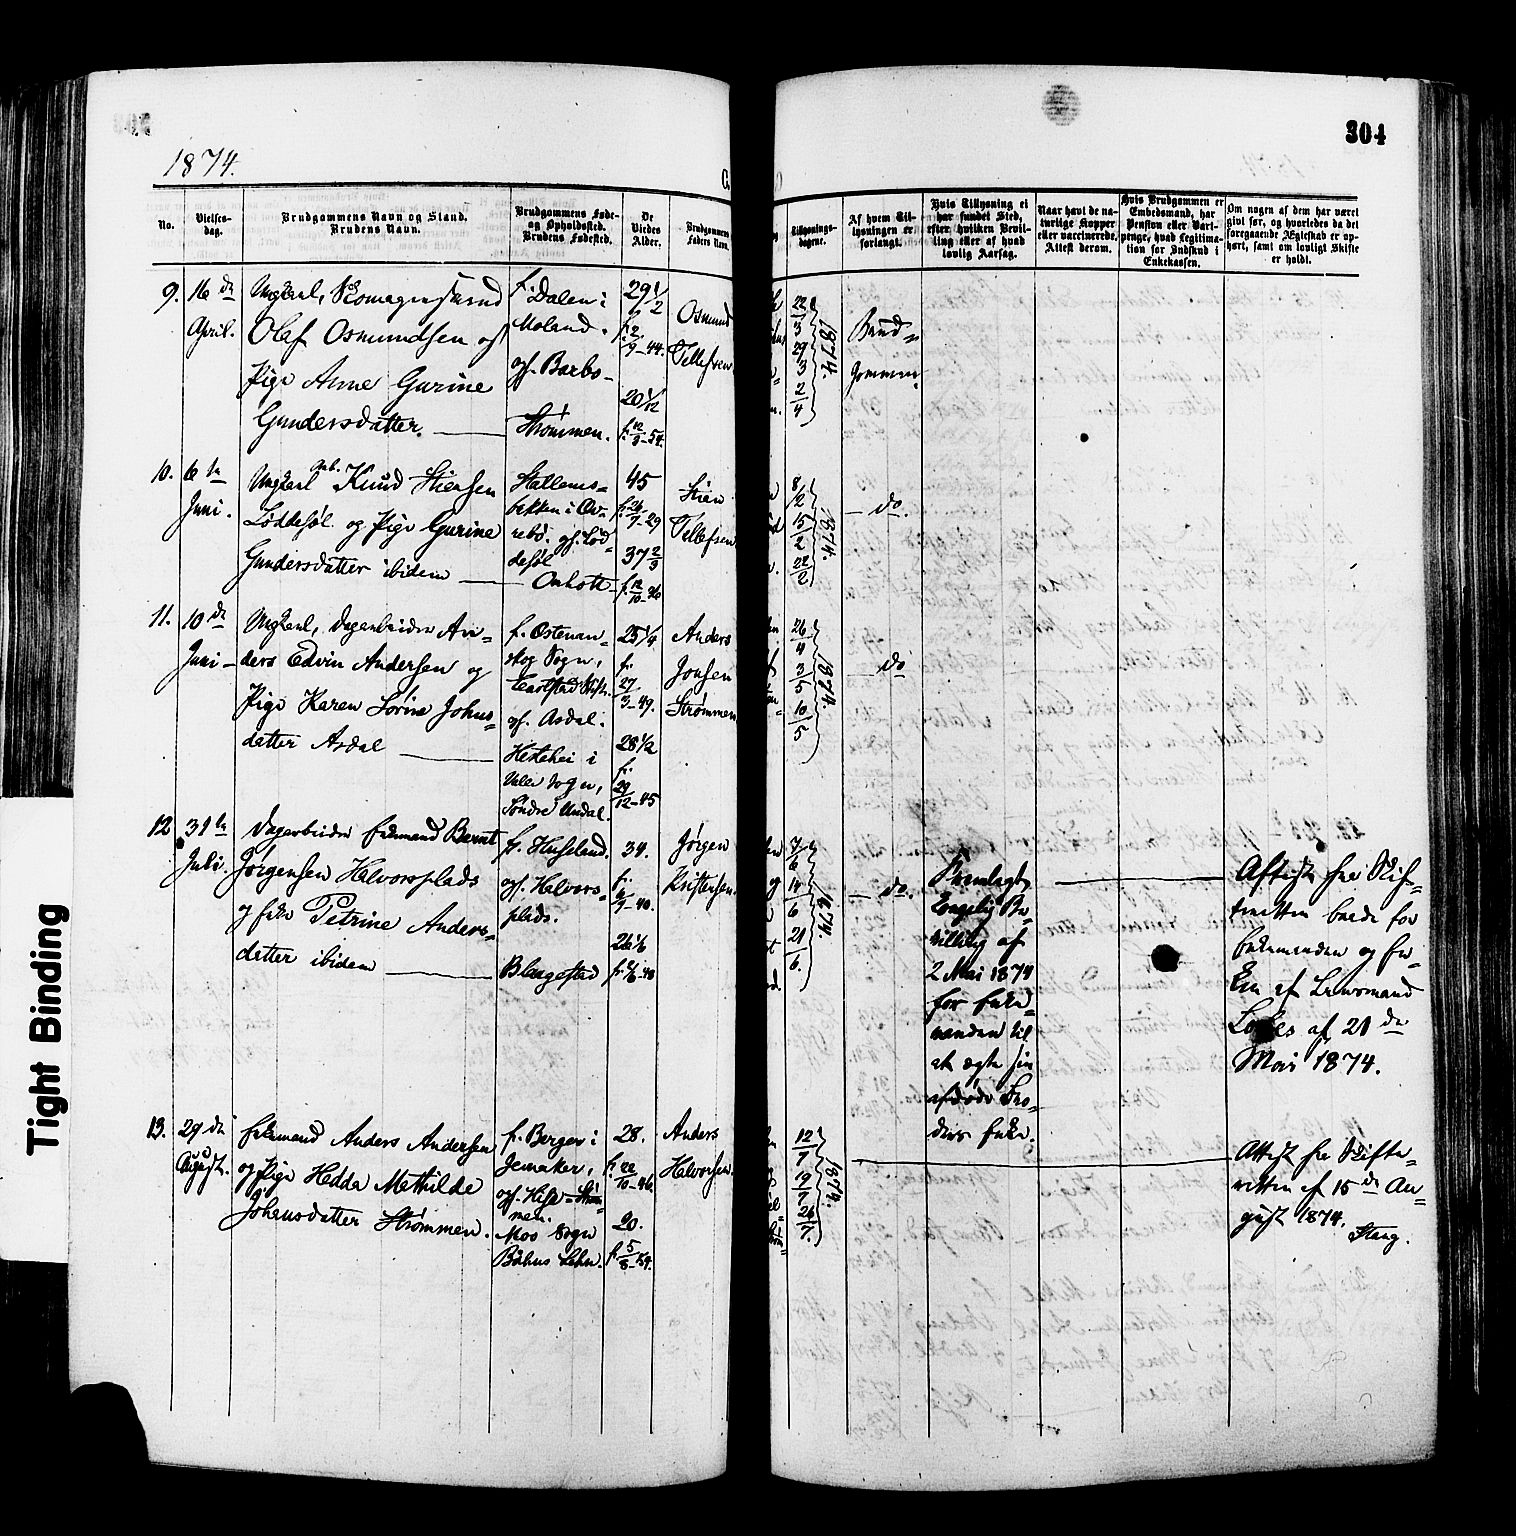 304
1874.
No.
Vielses-
dag.
Brudgommens Navn og Stand.
Brudens Navn.
Brudgommens Føde-
og Opholdssted.
Brudens Fødested.
De
Viedes
Alder.
Brudgommens
Faders Navn.
Tillysnings-
dagene.
Af hvem Til-
lysningen er
forlangt.
Hvis Tillysning ei
har fundet Sted,
efter hvilken Bevil-
ling eller af hvad
lovlig Aarsag.
Naar havt de na-
turlige Kopper
eller vaccinerede.
Attest derom.
Hvis Brudgommen er
Embedsmand, har
Pension eller Vart-
penge, hvad Legitima-
tion for Indskud i
Enkekassen.
Om nogen af dem har været
gift før, og hvorledes da det
foregaaende Ægteskab er op-
hørt, samt om lovligt Skifte
er holdt.
9. 16 de
April.
Ungkarl, Skomagersvend
Olaf Osmundsen og
Pige Anne Gurine
Gundersdatter.
f. Dalen i
Moland.
og f. Barbo-
Strømmen.
29 1/2
f. 2/9-44.
20 1/12
f. 12/3-54.
Osmund
Tellefsen
22/3
29/3
2/4
1874.
Brud-
gommen
10. 6 te
Juni.
Ungkarl Gmb. Knud Stiensen
Løddesøl og Pige Gurine
Gundersdatter ibidem
Stallems-
bekken i Øv-
rebø. g.f. Lød-
desøl
Omholt
45
f. 26/7-29
37 2/3
f. 12/10-36
Stien
Tellefsen
8/2
15/2
22/2
1874.
do.
11. 10 de
Juni
Ungkarl, Dagarbeider An-
ders Edvin Andersen og
Pige Karen Sørine Johns-
datter Asdal
f. Østenan-
skog Sogn,
Carlstad Stift.
g.f. Asdal.
Hestehei i
Valle Sogn,
Søndre Undal.
25 1/4
f.
27/3-49.
28 1/2
f.
29/12-45
Anders
Jonsen
Strømmen
26/4
3/5
10/5
1874.
do
12 31 te
Juli.
Dagarbeider Enkemand Bernt
Jørgensen Halvorsplads
og Enke Petrine Anders-
datter ibidem
f. Huseland.
g.f. Halvors-
plads.
Blaagestad
34.
f.
4/9-40.
26 1/6
Jørgen
Kristensen.
7/6
14/6
21/6.
1874.
do.
Fremlagt
Kongelig Be-
villing af
2 Mai 1874
for Enke-
manden til
at ægte sin
afdøde Bro-
ders Enke.
Attester fra Skif-
teretten baade for
Enkemanden og En-
ken af Lensmand
af 21 de
Mai 1874.
13. 29 de
August.
Enkemand Anders Andersen
og Pige Hedda Mathilde
Johansdatter Strømmen.
f. Berger i
Jemaker,
g.f. Hisø-Strøm-
men.
Moo Sogn
Båhus Lehn.
28.
f. 22/10-46.
20.
f. 5/8-54.
Anders
Halvorsen
12/7
19/7
26/7.
1874.
Attest fra Skifte-
retten af 15 de Au-
gust 1874.
Stang.
Tight Binding